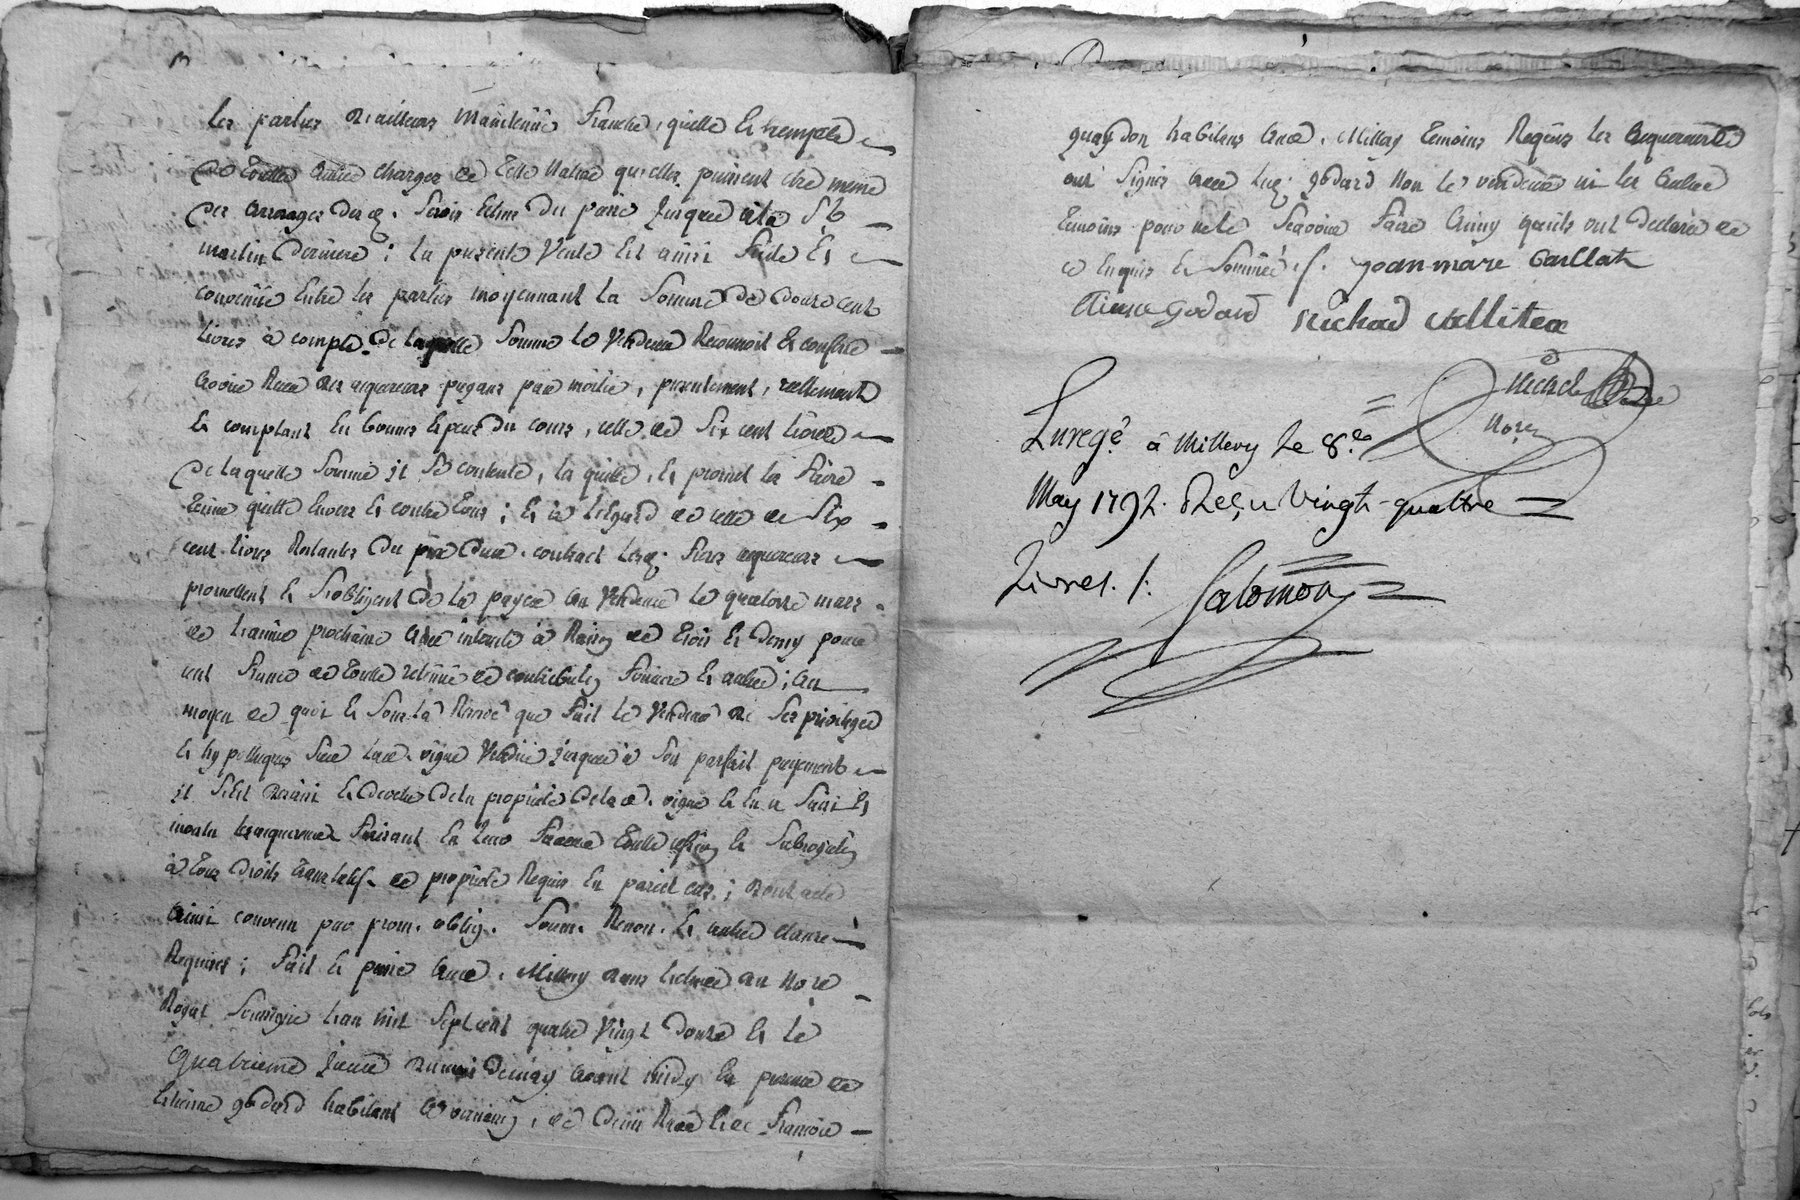 les parties d'ailleurs maintenüe franche, quitte et exempte
de toutte autre charges de telle nature qu'elles puissent etre meme
des arrerages desd. servis echus du passé jusques à la St
martin derniere ; la presente vente est ainsi faite et
convenüe entre les parties moyennant la somme de douze cent
livres à compte de laquelle somme le vendeur reconnoit et confesse
avoir reçu des acquereurs payans par moitié, presentement, reellement
et comptant en bonnes especes du cours, celle de six cent livres
de laquelle somme il se contente, la quitte, et promet la faire
tenir quitte envers et contre tous ; et à l'egard de celle de six
cent livres restantes du prix dud. contract lesq. sieurs acquereurs
promettent et s'obligent de la payer au vendeur le quatorze mars
de l'année prochaine avec interets à raison de trois et demy pour
cent franc de toutte retenüe de contribution fonciere et autre ; au
moyen de quoi et sous la reserve que fait le vendeur de ses privileges
et hypotheques sur lad. vigne vendüe jusques à son parfait payement
il s'est demis et devetu de la propriété de lad. vigne et en a saisi et
investu les acquereurs faisant en leur faveur toutte cession et subrogation
à tous droits translatifs de propriété requis en pareil cas ; dont acte
ainsi convenu par prom. oblig. soum. renon. et autres clauses
requises ; fait et passé aud. Millery dans l'etude du no.re
royal soussigné l'an mil sept cent quatre vingt douze et le
quatrieme jour du mois de may avant midy en presence de
Etienne godard habitant à , et de François
 habitans aud. Millery temoins requis les acquereurs
ont signés avec led. godard non le vendeur ni les autres
temoins pour ne le sçavoir faire ainsy qu'ils ont declaré de
ce enquis et sommés ./. jean-mare Gaillat
Etiene Godard Richard valliter
Michel
No.re
Enregé. à Millery le 8.e
May 1792. Reçu Vingt-quattre
Livres. /. Salomon